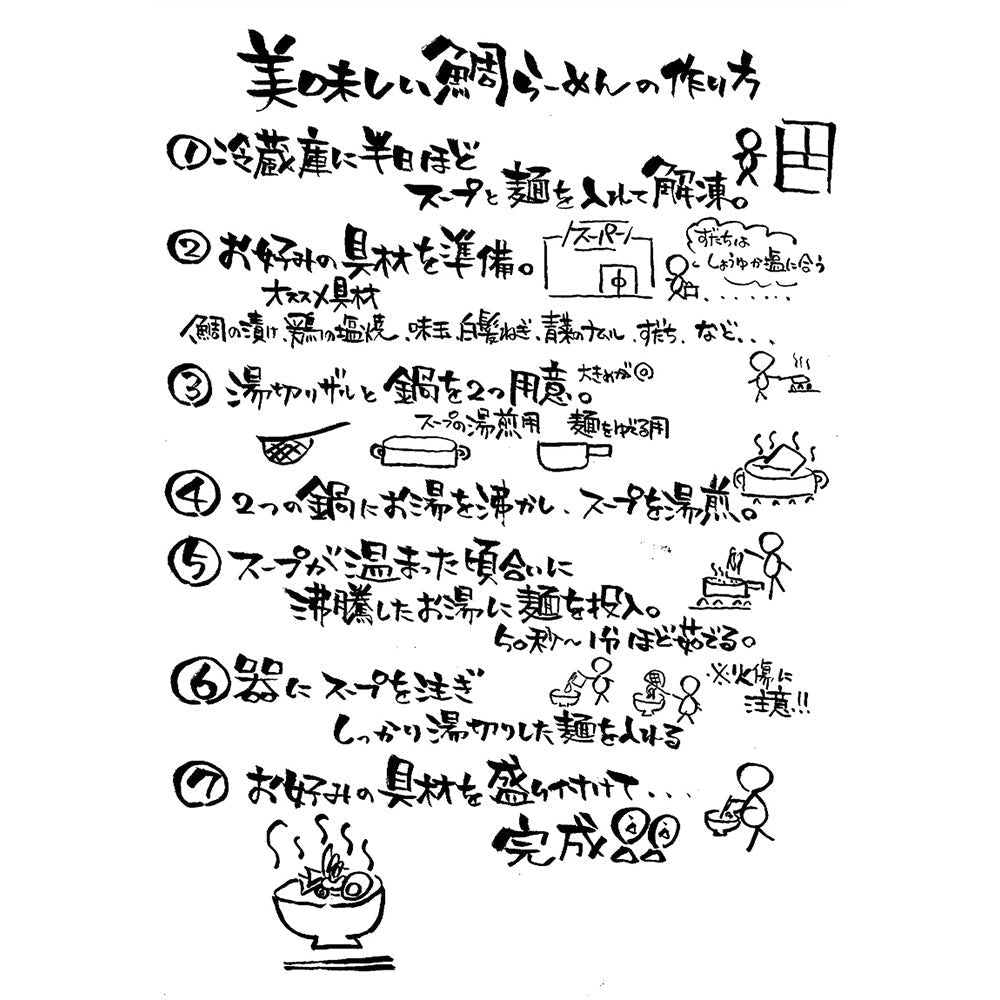 美味しい鯛らーめんの作り方
①冷蔵庫に半日ほど
スープと麺を入れて解凍。
②お好みの具材を準備。
スーパー
すだちは
しょうゆか塩に合う
オススメ具材
鯛の漬け、鶏の塩焼、味玉、白髪ねぎ、青菜のナムル、すだち、など...
③湯切りザルと鍋を2つ用意。
大きめが◎
スープの湯煎用 麺をゆでる用
④2つの鍋にお湯を沸かし、スープを湯煎。
⑤スープが温まった頃合いに
沸騰したお湯に麺を投入。
50秒〜1分ほど茹でる。
⑥器にスープを注ぎ
しっかり湯切りした麺を入れる
※火傷に
注意!!
⑦お好みの具材を盛り付けて...
完成